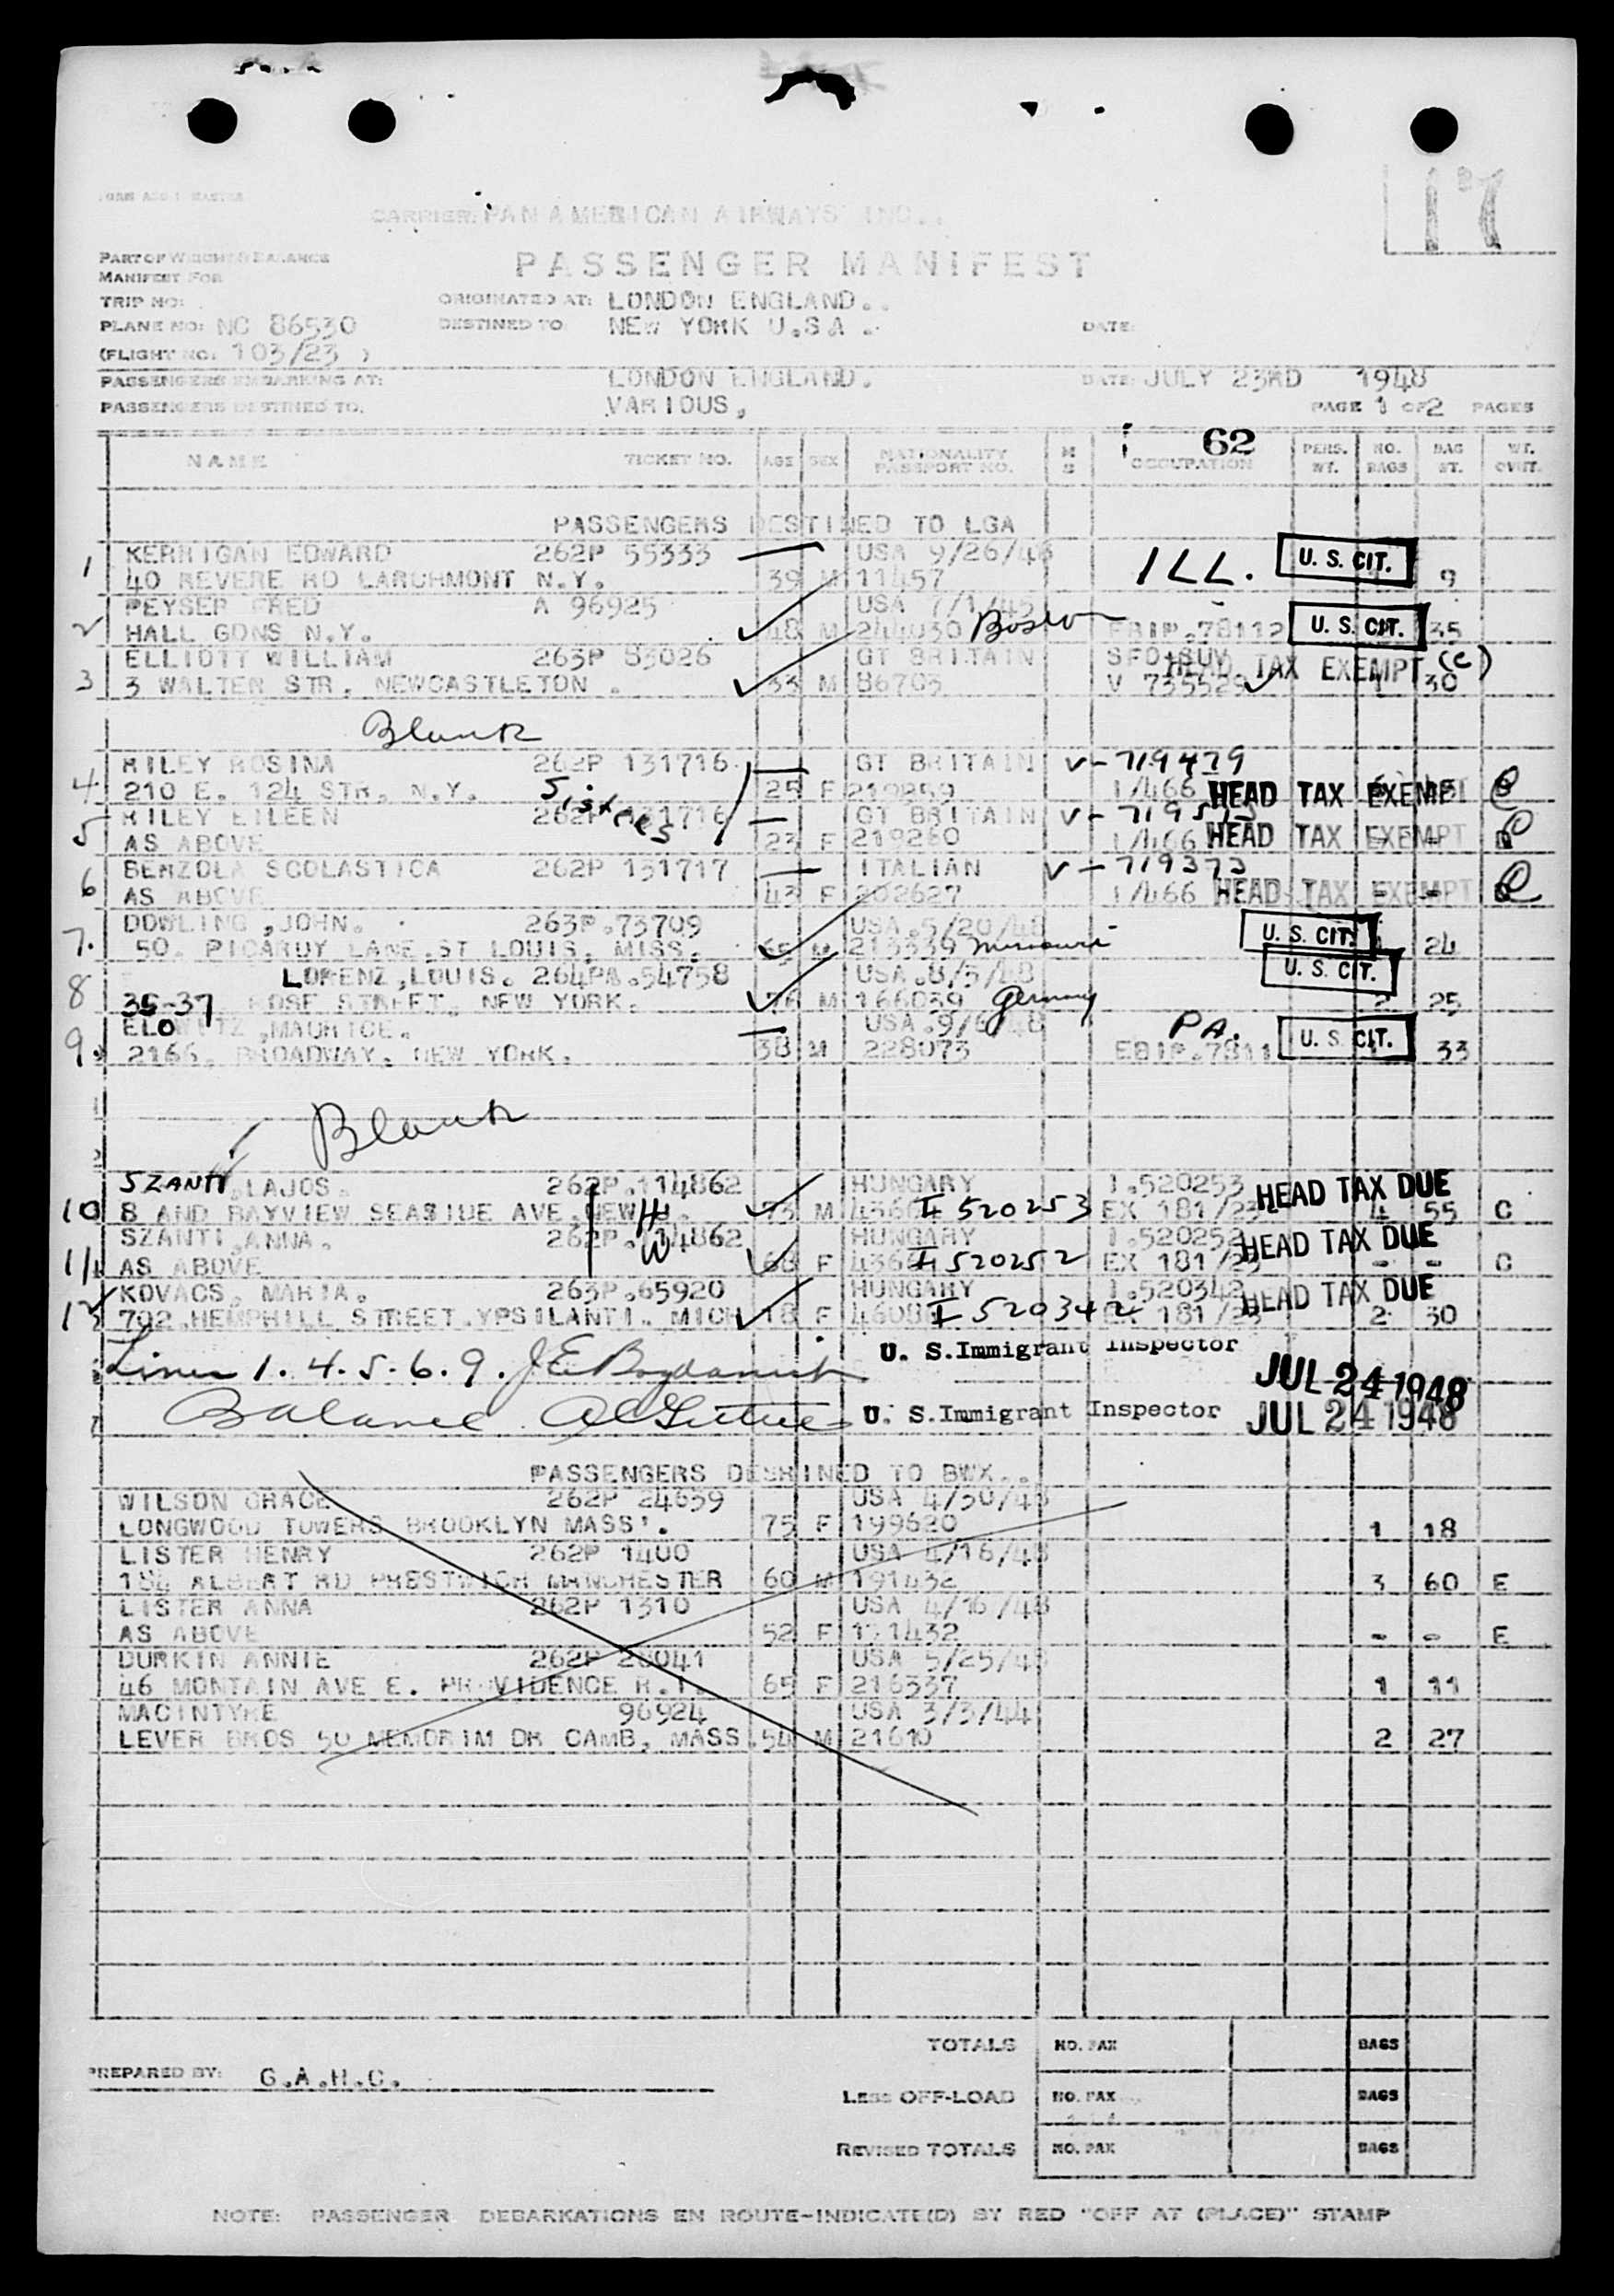 17
FORM ACC-1 MASTER
CARRIER: PAN AMERICAN AIRWAYS INC..
PART OF WEIGHT & BALANCE
MANIFEST FOR
PASSENGER MANIFEST
TRIP NO:
ORIGINATED AT: LONDON ENGLAND..
PLANE NO: NC 86530
DESTINED TO: NEW YORK U.S.A .
DATE:
(FLIGHT NO: 103/23 )
PASSENGERS EMBARKING AT: LONDON ENGLAND. DATE: JULY 23RD 1948
PASSENGERS DESTINED TO: VARIOUS, PAGE 1 OF 2 PAGES
62
NAME TICKET NO. AGE SEX NATIONALITY PASSPORT NO. M S OCCUPATION PERS. WT. NO. BAGS BAG WT. WT. OVWT.
PASSENGERS DESTINED TO LGA
1 KERRIGAN EDWARD 262P 55333 USA 9/26/46 ILL. U. S. CIT.
40 REVERE RD LARCHMONT N.Y. 39 M 11457 9
2 PEYSER FRED A 96925 USA 7/1/45
HALL GDNS N.Y. 48 M 244030 Boston EBIP.78112 U. S. CIT. 35
3 ELLIOTT WILLIAM 263P 83026 GT BRITAIN SFO-SUV
3 WALTER STR, NEWCASTLETON . 33 M 86703 V 735529 HEAD TAX EXEMPT (C) 30
Blank
4 RILEY ROSINA 262P 131716 GT BRITAIN V-719479
210 E. 124 STR, N.Y. Sisters 25 F 219259 1/466 HEAD TAX EXEMPT
5 RILEY EILEEN 262P 131716 GT BRITAIN V-719513
AS ABOVE 23 F 219260 1/466 HEAD TAX EXEMPT
6 BENZOLA SCOLASTICA 262P 131717 ITALIAN V-719373
AS ABOVE 43 F 202627 1/466 HEAD TAX EXEMPT
7. DOWLING ,JOHN. 263P.73709 USA.5/20/48
50. PICARDY LANE,ST LOUIS, MISS. 65 M 213339 Missouri U. S. CIT. 24
8 LORENZ,LOUIS. 264PA.54758 USA.8/3/48 U. S. CIT.
35-37 ROSE STREET, NEW YORK. M 166039 Germany 2 25
9. ELOWITZ ,MAURICE. USA.9/6/48 PA.
2166, BROADWAY, NEW YORK. 38 M 228073 EBIP.7811 U. S. CIT. 33
Blank
10 SZANTI,LAJOS. 262P.114862 HUNGARY I.520253 HEAD TAX DUE
8 AND BAYVIEW SEASIDE AVE,NEW H W 73 M I 520253 EX 181/23 4 55 C
11 SZANTI,ANNA. 262P.114862 HUNGARY I.520252 HEAD TAX DUE
AS ABOVE 68 F I 520252 EX 181/23 - - C
12 KOVACS, MARIA. 263P.65920 HUNGARY I.520342 HEAD TAX DUE
702.HEMPHILL STREET.YPSILANTI. MICH 18 F I 520342 EX 181/23 2 30
Lines 1. 4. 5. 6. 9. U. S.Immigrant Inspector JUL 24 1948
Balance U. S.Immigrant Inspector JUL 24 1948
PASSENGERS DESTINED TO BWX..
WILSON GRACE 262P 24659 USA 4/30/48
LONGWOOD TOWERS BROOKLYN MASS'. 75 F 199620 1 18
LISTER HENRY 262P 1400 USA 4/16/48
184 ALBERT RD PRESTWICH MANCHESTER 60 M 191432 3 60 E
LISTER ANNA 262P 1310 USA 4/16/48
AS ABOVE 52 F 191432 - - E
DURKIN ANNIE 262P 28041 USA 5/25/48
46 MONTAIN AVE E. PROVIDENCE R.I. 65 F 216337 1 11
MACINTYRE 96924 USA 3/3/44
LEVER BROS 50 MEMORIM DR CAMB, MASS. 54 M 21610 2 27
TOTALS NO. PAX BAGS
PREPARED BY: G.A.H.C.
LESS OFF-LOAD NO. PAX BAGS
REVISED TOTALS NO. PAX BAGS
NOTE: PASSENGER DEBARKATIONS EN ROUTE-INDICATE(D) BY RED "OFF AT (PLACE)" STAMP